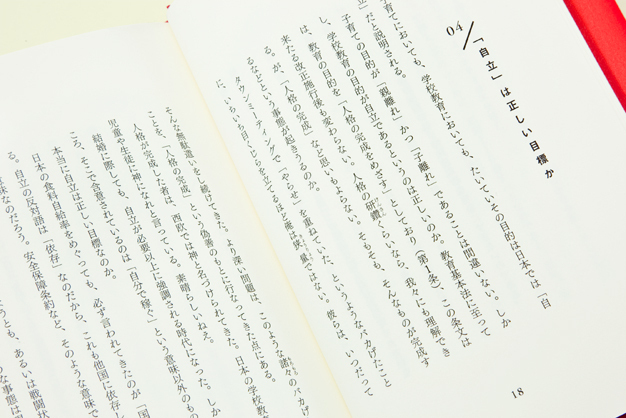 04／「自立」は正しい目標か
子育てにおいても、学校教育においても、たいていその目的は日本では「自
立」だと説明される。
子育ての目的が「親離れ」かつ「子離れ」であることは間違いない。しか
し、学校教育の目的が自立であるというのは正しいのか。教育基本法に至って
は、教育の目的を「人格の完成をめざす」としており（第1条）、この条文は
来たる改正施行後も変わらない。人格の研鑽くらいなら、我々にも理解でき
る。が、「人格の完成」など思いもよらない。そもそも、そんなものが完成す
るなどという事態が起きうるのか。
タウンミーティングで「やらせ」を重ねていた、というようなバカげたこと
に、いちいち目くじらを立てるほど俺は
ない。彼らは、いつだって
そんな無駄遣いをし続けてきた。より深い問題は、このような諸々のバカげ
ことを、「人格の完成」という偽善のもとに行なってきた点にある。
人格が完成した者は、西欧では神と名づけられてきた。日本の学校教
児童や生徒に神になれと言っている。素晴らしいねぇ。
結婚に際しても、自立が必要以上に強調される時代になった。しか
ころ、そこで含意されているのは「自分で稼ぐ」という意味以外のも
本当に、自立は正しい目標なのか。
日本の食料自給率をめぐっても、必ず言われてきたのが「国
る。自立の反対語は「依存」なのだから、これも他国に依存し
味なのだろう。安全保障条約など、そのような意味で
うとも、あるいは戦闘状
な事態は
18